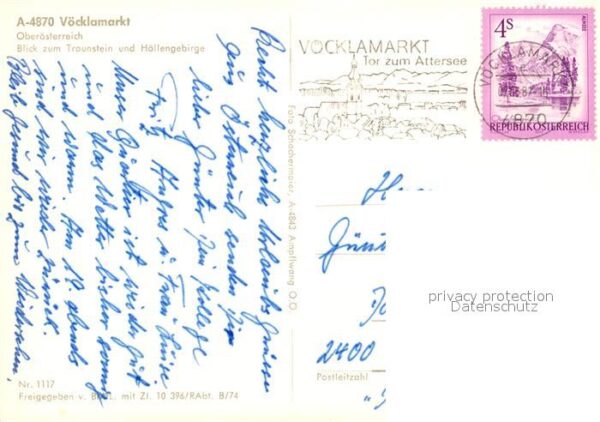 A-4870 Vöcklamarkt
Oberösterreich
Blick zum Traunstein und Höllengebirge
Recht herzliche Urlaubs Grüsse
aus Österreich senden Dir
lieber Günter Dein Kollege
Fritz u. Frau Luise
Unser Quartier ist wieder gut
und das Wetter bisher sonnig
und warm. Am 18. abends
sind wir wieder zurück.
Bleib gesund bis zum Wiedersehen.
Nr. 1117
Freigegeben v. B. L. mit Zl. 10 396/RAbt. B/74
Foto Schachermaier, A-4843 Ampflwang O.Ö.
VÖCKLAMARKT
Tor zum Attersee
VÖCKLAMARKT
4870
4S
ALMSEE
REPUBLIK ÖSTERREICH
Günt
2400
Postleitzahl
privacy protection
Datenschutz